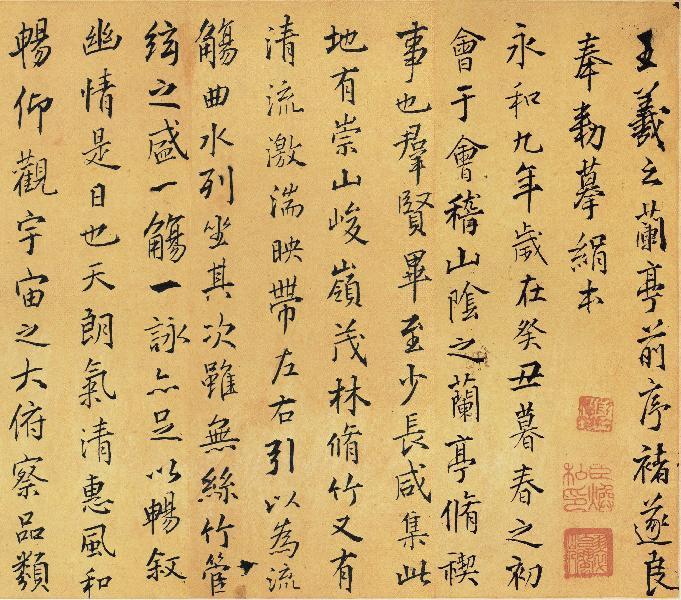 王羲之蘭亭前序褚遂良
奉勑摹絹本
永和九年歲在癸丑暮春之初
會于會稽山陰之蘭亭脩禊
事也羣賢畢至少長咸集此
地有崇山峻嶺茂林脩竹又有
清流激湍映帶左右引以為流
觴曲水列坐其次雖無絲竹管
絃之盛一觴一詠亦足以暢叙
幽情是日也天朗氣清惠風和
暢仰觀宇宙之大俯察品類